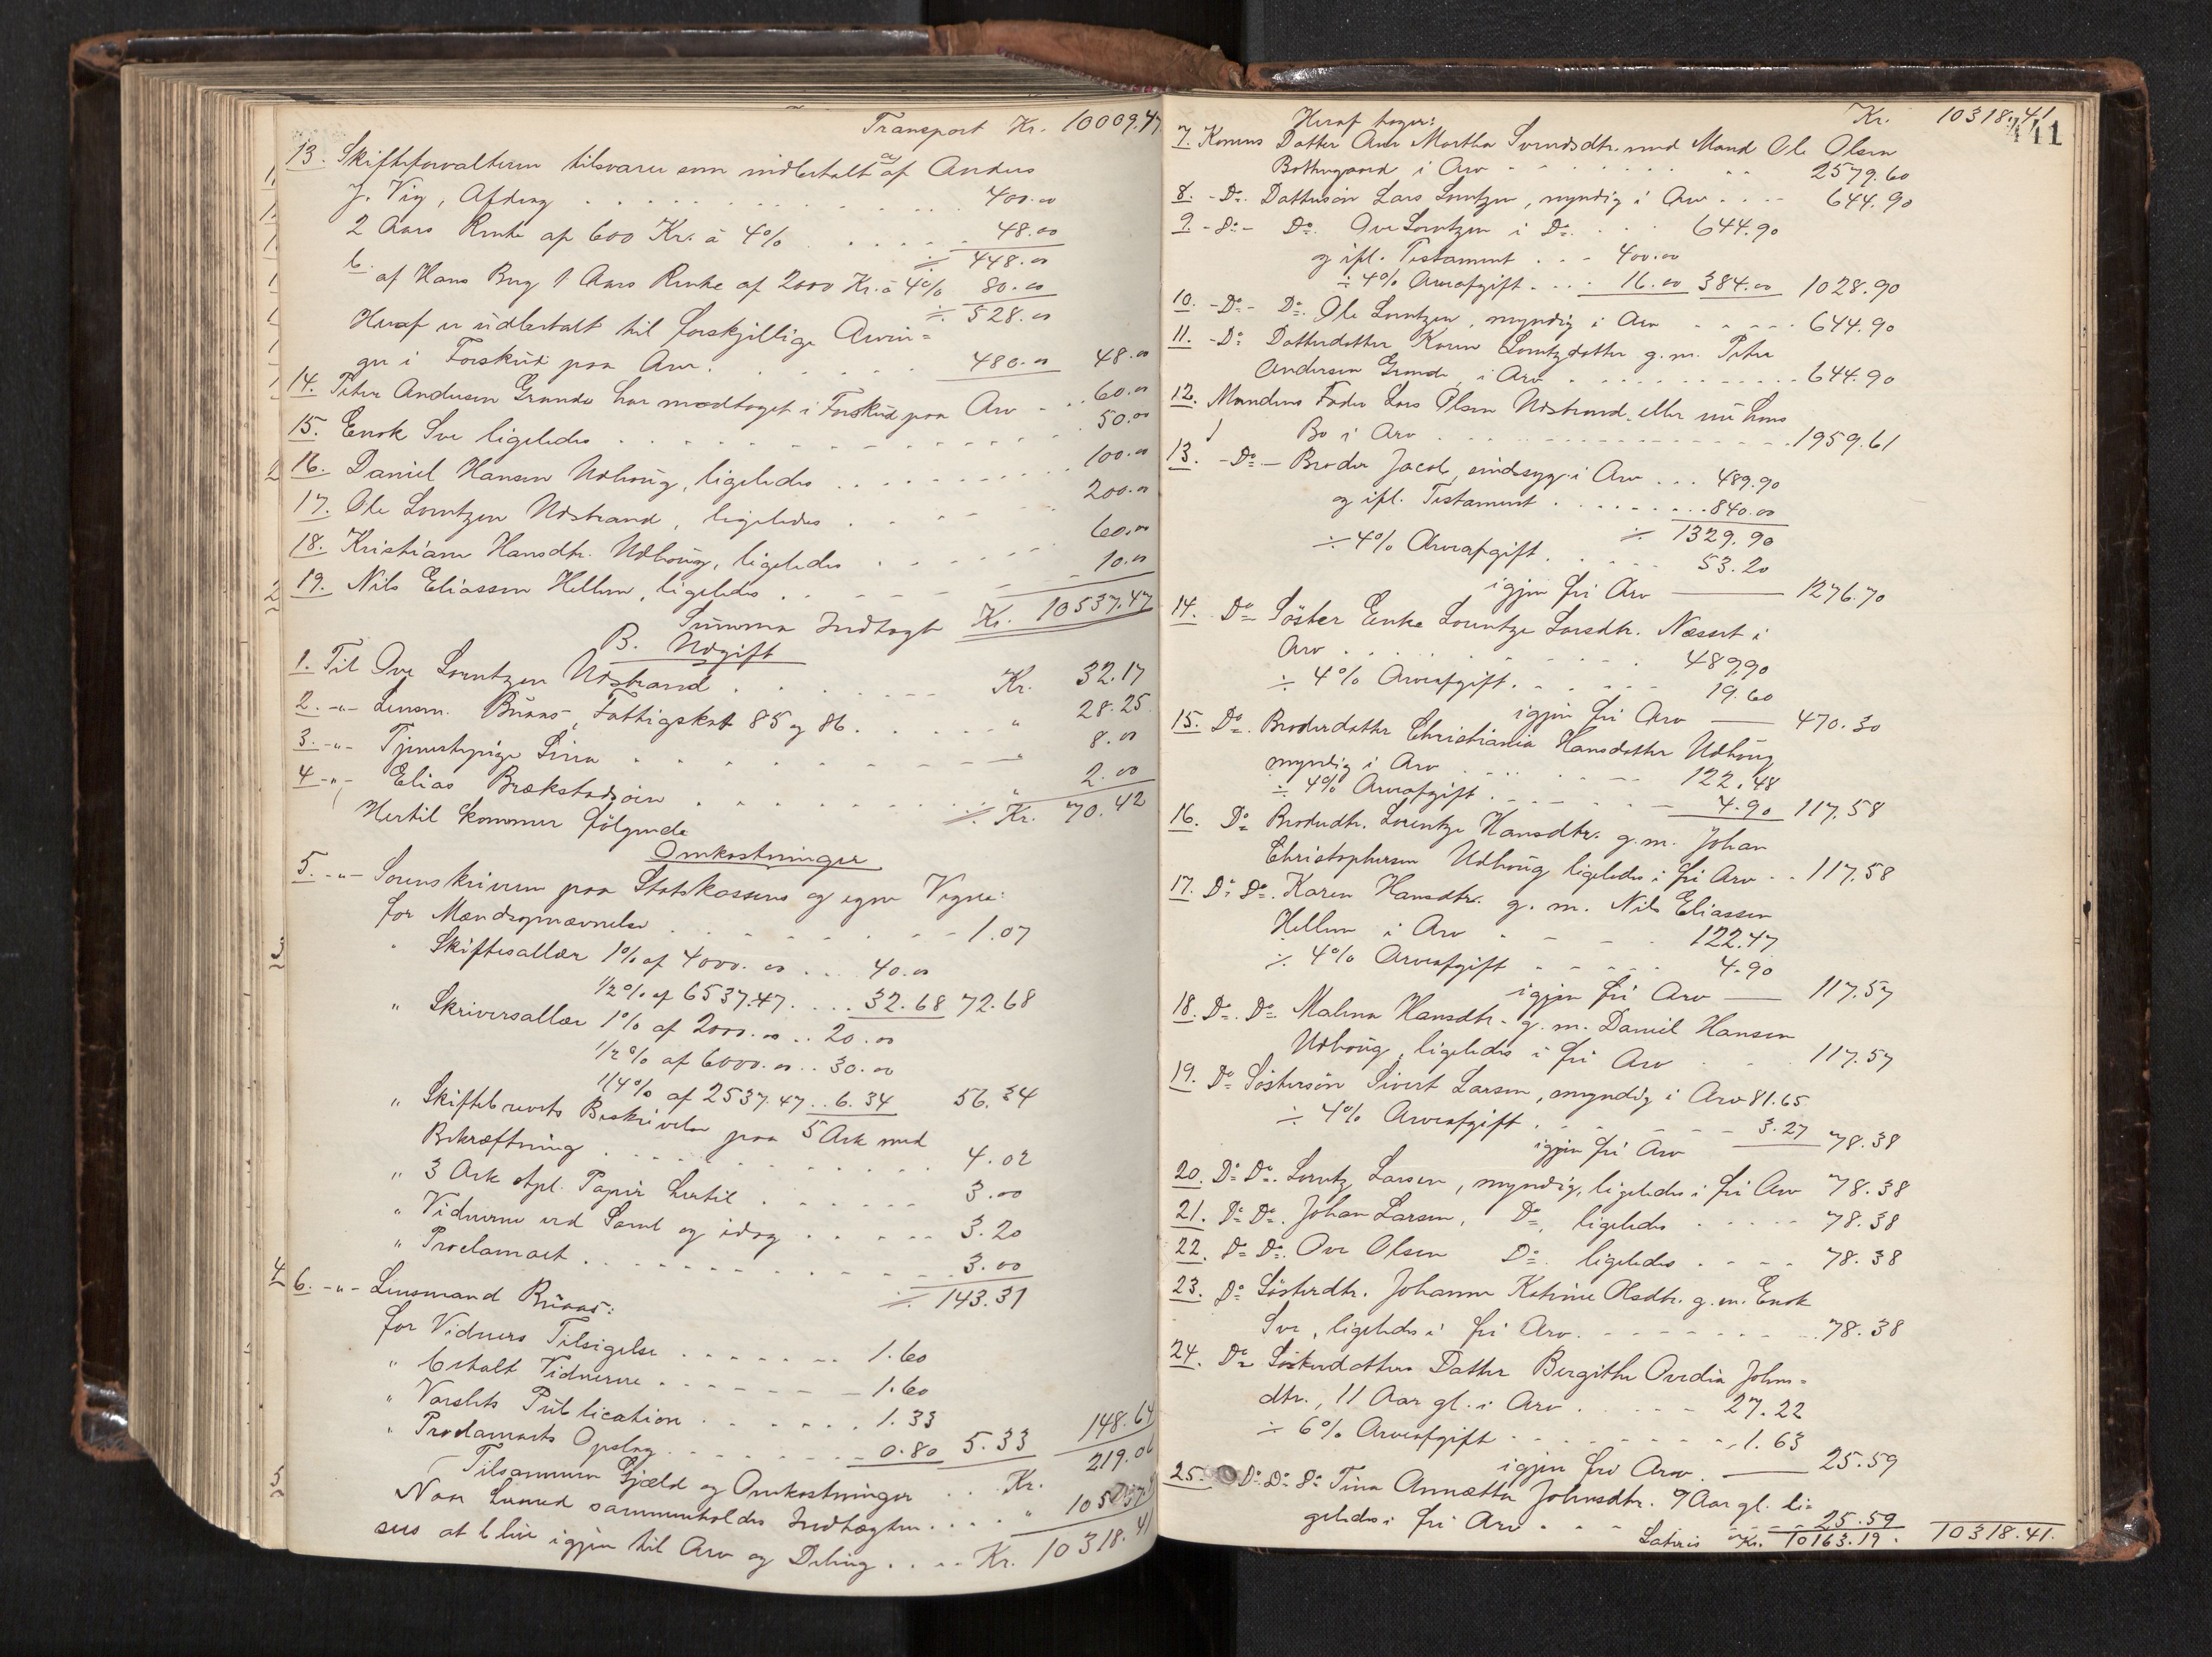 Transport Kr. 10009.47
13. Skifteforvalteren tilsvarer som indbetalt a) af Anders
J. Vig, Afdrag . . . 400.00
2 Aars Rente af 600 Kr. à 4% . . . 48.00
÷ 448.00
b. af Hans Brug 1 Aars Rente af 2000 Kr. à 4% 80.00
÷ 528.00
Heraf er udbetalt til forskjellige Arvin=
ger i Forskud paa Arv. . . . 480.00 48.00
14. Peter Andersen Grande har modtaget i Forskud paa Arv . . 60.00
15. Enok Sve ligeledes . . . 50.00
16. Daniel Hansen Udhoug, ligeledes . . . 100.00
17. Ole Lorntzen Udstrand, ligeledes . . . 200.00
18. Kristiane Hansdtr. Udhoug, ligeledes . . . 60.00
19. Nils Eliassen Hellem, ligeledes . . . 10.00
Summa Indtægt Kr. 10537.47
B. Udgift
1. Til Ove Lorntzen Udstrand . . . Kr. 32.17
2. -"- Lensm. Buaas, Fattigskat 85 og 86 . . . " 28.25
3. -"- Tjenestepige Sina . . . " 8.00
4 -"- Elias Brækstadøien . . . " 2.00
÷ Kr. 70.42
Hertil kommer følgende
Omkostninger
5. -"- Sorenskriveren paa Statskassens og egne Vegne:
for Mændsopnævnelse . . . 1.07
" Skiftesallær 1% af 4000.00 . . 40.00
1/2% af 6537.47 . . . 32.68 72.68
" Skriversallær 1% af 2000.00 . . 20.00
1/2% af 6000.00 . . 30.00
1/4% af 2537.47 . . 6.34 56.34
" Skiftebrevets Beskrivelse paa 5 Ark med
Bekræftning . . . 4.02
" 3 Ark stpl. Papir hertil . . . 3.00
" Vidnerne ved Saml og idag . . . 3.20
" Proclamaet . . . 3.00
÷ 143.31
6. -"- Lensmand Buaas:
for Vidners Tilsigelse . . . 1.60
" betalt Vidnerne . . . 1.60
" Varslets Publication . . . 1.33
" Proclamaets Opslag . . . 0.80 5.33 148.64
Tilsammen Gjæld og Omkostninger . . Kr. 219.06
Naar hermed sammenholdes Indtægten . . . " 10537.47
sees at blive igjen til Arv og Deling . . . Kr. 10318.41
Heraf tager: Kr. 10318.41
441
7. Konens Datter Ane Martha Svendsdtr. med Mand Ole Olsen
Bothngaard i Arv . . . 2579.60
8. -Do. Dattersøn Lars Lorntzen, myndig i Arv . . . 644.90
9. -Do- Do. Ove Lorntzen i Do. . . . 644.90
og ifl. Testament . . . 400.00
÷ 4% Arveafgift . . . 16.00 384.00 1028.90
10. -Do- Do. Ole Lorntzen, myndig i Arv . . . 644.90
11. -Do Datterdatter Karen Lorntzdatter g. m. Peter
Andersen Grande, i Arv . . . 644.90
12. Mandens Fader Lars Olsen Udstrand, eller nu hans
Bo i Arv . . . 1959.61
13. -Do- Broder Jacob, sindssyg i Arv . . . 489.90
og ifl. Testament . . . 840.00
÷ 1329.90
÷ 4% Arveafgift . . . 53.20
igjen fri Arv 1276.70
14. Do Søster Enke Lorntze Larsdtr. Næsset i
Arv . . . 489.90
÷ 4% Arveafgift . . . 19.60
igjen fri Arv 470.30
15. Do. Broderdatter Christiania Hansdatter Udhoug
myndig i Arv . . . 122.48
÷ 4% Arveafgift . . . 4.90 117.58
16. Do Broderdtr. Lorentze Hansdtr. g. m. Johan
Christophersen Udhoug ligeledes i fri Arv . . 117.58
17. Do Do. Karen Hansdtr. g. m. Nils Eliassen
Hellem i Arv . . . 122.47
÷ 4% Arveafgift . . . 4.90
igjen fri Arv 117.57
18. Do. Do. Malena Hansdtr. g. m. Daniel Hansen
Udhoug, ligeledes i fri Arv . . . 117.57
19. Do Søstersøn Sivert Larsen, myndig i Arv 81.65
÷ 4% Arveafgift . . . 3.27 78.38
igjen fri Arv
20. Do Do. Lorntz Larsen, myndig, ligeledes i fri Arv 78.38
21. Do Do. Johan Larsen, Do, ligeledes . . . 78.38
22. Do Do. Ove Olsen Do. ligeledes . . . 78.38
23. Do Søsterdtr. Johanna Katrine Olsdtr. g. m. Enok
Sve, ligeledes i fri Arv . . . 78.38
24. Do Søsterdatters Datter Bergithe Ovedia Johns=
dtr., 11 Aar gl. i Arv . . . 27.22
÷ 6% Arveafgift . . . 1.63
igjen fri Arv . 25.59
25. Do Do Do Tina Annætta Johnsdtr. 7 Aar gl. li=
geledes i fri Arv . . . 25.59
Lateris Kr. 10163.19. 10318.41.